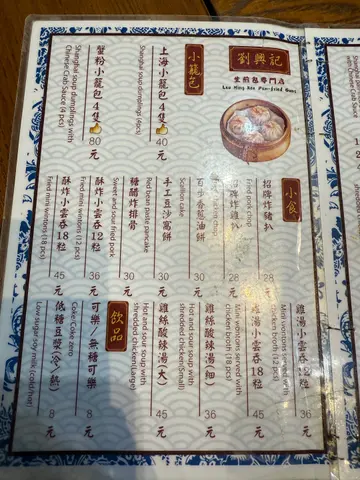 劉興記
生煎包專門店
Lau Hing Kee Pan-fried Buns
小籠包
上海小籠包 4隻
Shanghai soup dumplings (4pcs)
40元
蟹粉小籠包 4隻
Shanghai soup dumplings with Chinese Crab Sauce (4 pcs)
80元
小食
招牌炸豬扒
Fried pork chop
36元
招牌炸雞扒
36元
葱油餅
Scallion cake
手工豆沙窩餅
Red bean paste pancake
30元
糖醋炸排骨
Sweet and sour fried pork
30元
酥炸小雲吞12粒
Fried mini wontons (12 pcs)
36元
酥炸小雲吞18粒
Fried mini wontons (18 pcs)
45元
雞湯小雲吞12粒
Mini wontons served with chicken broth (12 pcs)
36元
雞湯小雲吞18粒
Mini wontons served with chicken broth (18 pcs)
45元
雞絲酸辣湯(細)
Hot and sour soup with shredded chicken(Small)
36元
雞絲酸辣湯(大)
Hot and sour soup with shredded chicken(Large)
45元
飲品
可樂/無糖可樂
Coke/Coke zero
8元
低糖豆漿(冷/熱)
Low sugar soy milk (cold/hot)
8元